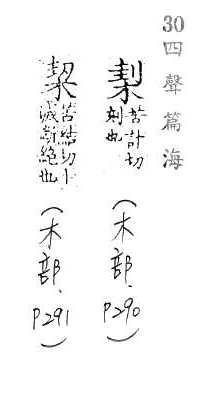 30四聲篇海
栔
苦計切
刻也
(木部、P290)
苦結切
滅斷絕也
(木部、P291)